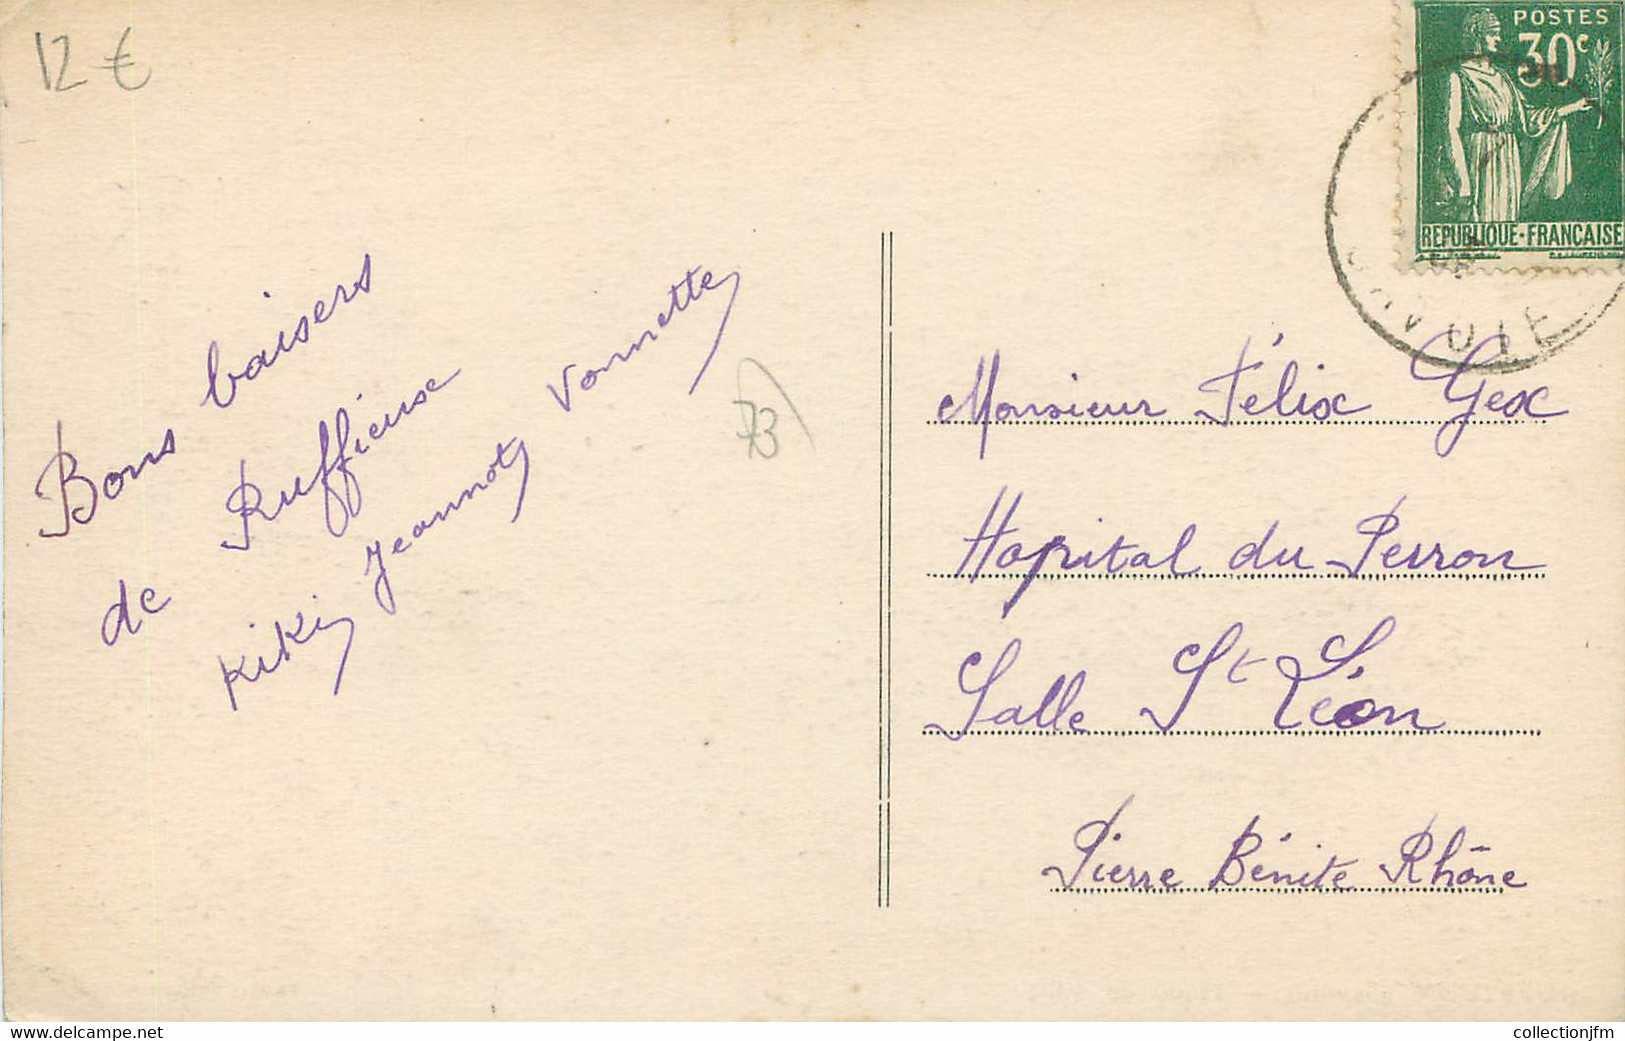 12 €
POSTES
30c
REPUBLIQUE-FRANCAISE
Bons baisers
de Ruffieux
Kiki, Jeannot, Vonnette,
73
Monsieur Félix Gex
Hopital du Perron
Salle St Léon
Pierre Bénite Rhône
www.delcampe.net
collectionjfm